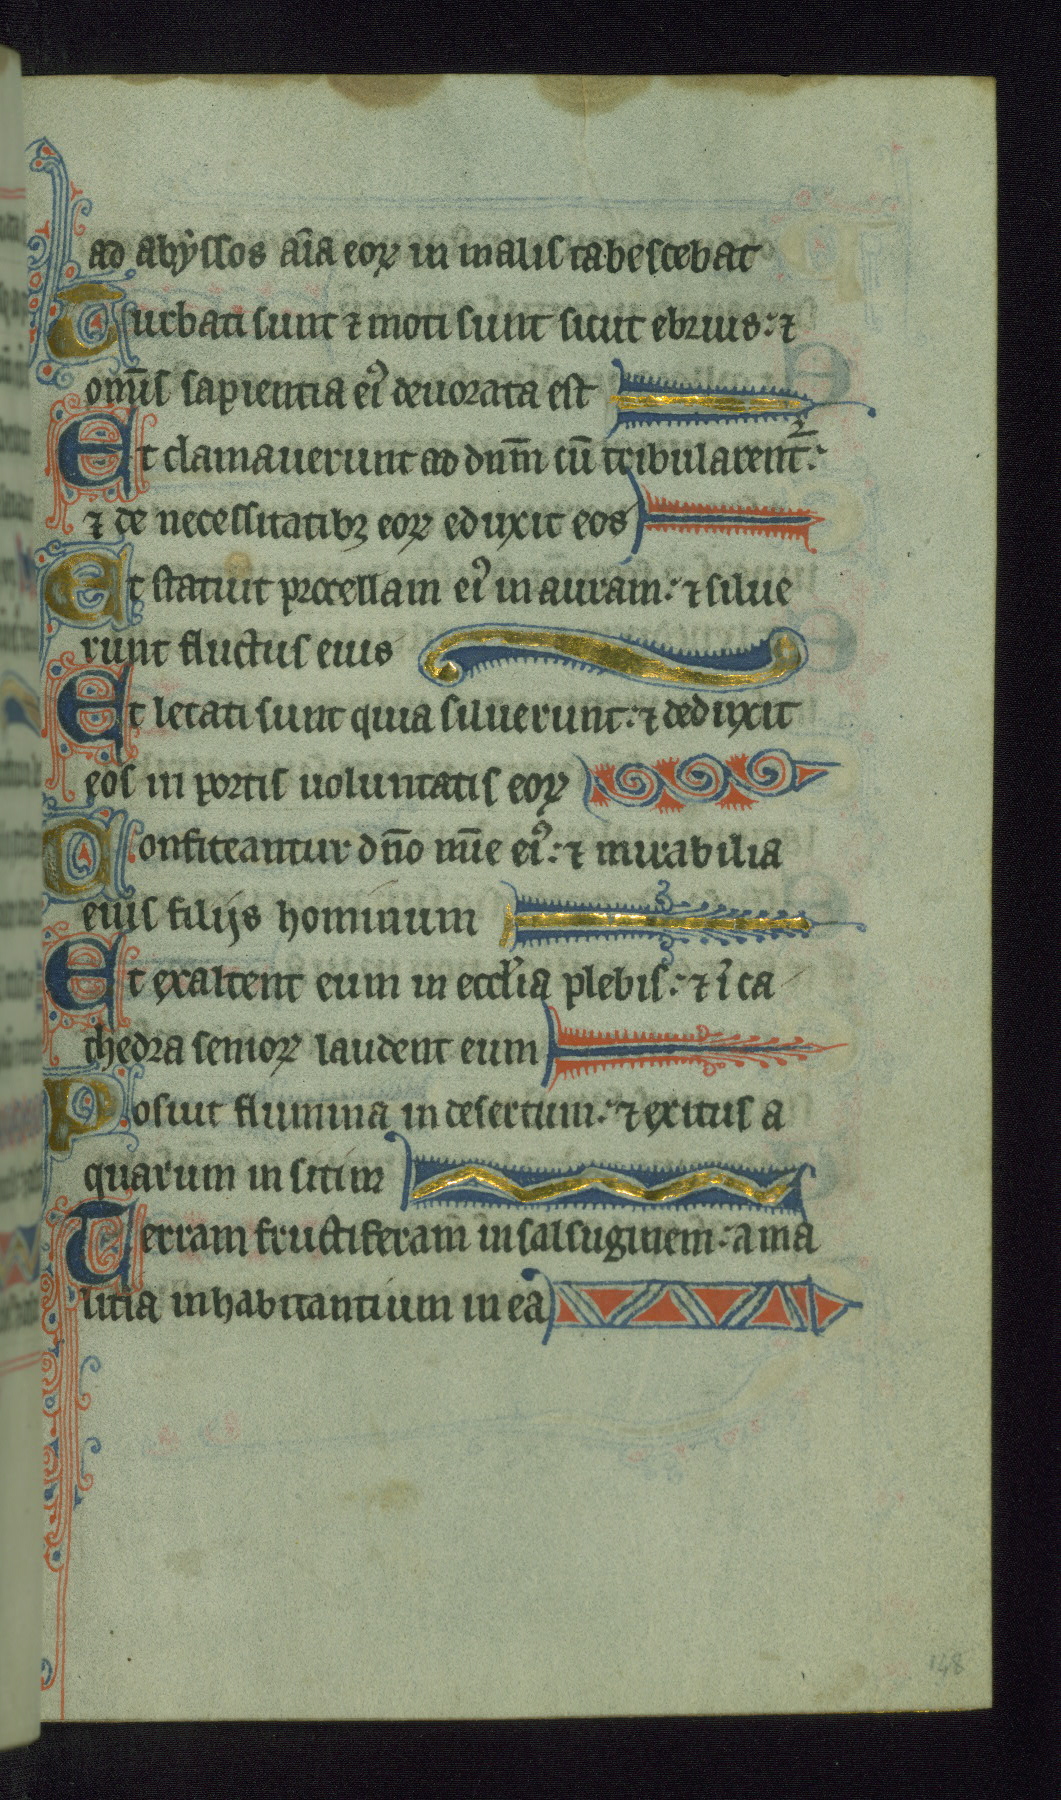 ad abyssos aīa eoꝝ in malis tabescebat
Turbati sunt ⁊ moti sunt sicut ebrius: ⁊
om̄is sapientia ei᷒ deuorata est
Et clamauerunt ad dn̄m cū tribularent᷑:
⁊ de necessitatibꝫ eoꝝ eduxit eos
Et statuit procellam ei᷒ in auram: ⁊ silue
runt fluctus eius
Et letati sunt quia siluerunt: ⁊ deduxit
eos in portis uoluntatis eoꝝ
Confiteantur dn̄o mīe ei᷒: ⁊ mirabilia
eius filijs hominum
Et exaltent eum in eccl̄ia plebis: ⁊ ī ca
thedra senioꝝ laudent eum
Posuit flumina in desertum: ⁊ exitus a
quarum in sitim
Terram fructiferam in salsuginem: a ma
litia inhabitantium in ea
148